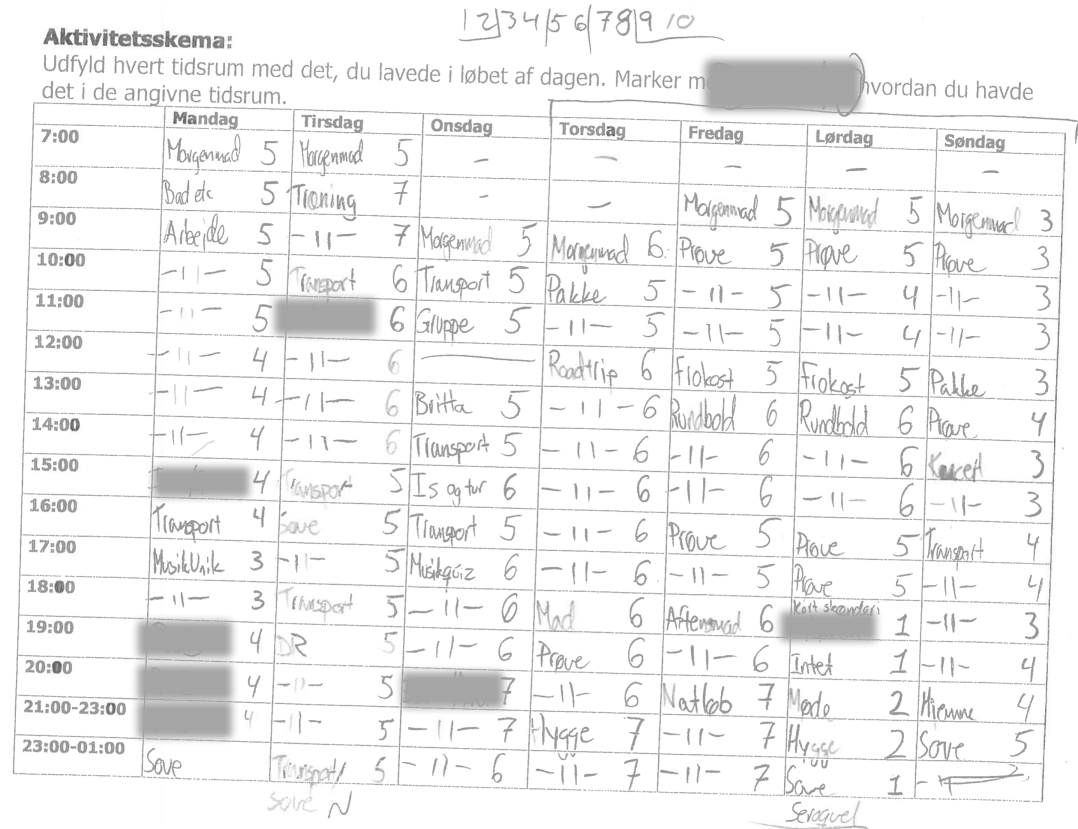 1 2|3 4|5 6|7 8|9 10
Aktivitetsskema:
Udfyld hvert tidsrum med det, du lavede i løbet af dagen. Marker m hvordan du havde
det i de angivne tidsrum.
Mandag Tirsdag Onsdag Torsdag Fredag Lørdag Søndag
7:00 Morgenmad 5 Morgenmad 5 - - - - -
8:00 Bad etc 5 Træning 7 - - Morgenmad 5 Morgenmad 5 Morgenmad 3
9:00 Arbejde 5 -11- 7 Morgenmad 5 Morgenmad 6 Prøve 5 Prøve 5 Prøve 3
10:00 -11- 5 Transport 6 Transport 5 Pakke 5 -11- 5 -11- 4 -11- 3
11:00 -11- 5 6 Gruppe 5 -11- 5 -11- 5 -11- 4 -11- 3
12:00 -11- 4 -11- 6 — Roadtrip 6 Frokost 5 Frokost 5 Pakke 3
13:00 -11- 4 -11- 6 Britta 5 -11- 6 Rundbold 6 Rundbold 6 Prøve 4
14:00 -11- 4 -11- 6 Transport 5 -11- 6 -11- 6 -11- 6 3
15:00 4 Transport 5 Is og tur 6 -11- 6 -11- 6 -11- 6 -11- 3
16:00 Transport 4 Sove 5 Transport 5 -11- 6 Prøve 5 Prøve 5 Transport 4
17:00 MusikUnik 3 -11- 5 Musikquiz 6 -11- 6 -11- 5 Prøve 5 -11- 4
18:00 -11- 3 Transport 5 -11- 6 Mad 6 Aftensmad 6 Kort skænderi 1 -11- 3
19:00 4 DR 5 -11- 6 Prøve 6 -11- 6 Intet 1 -11- 4
20:00 4 -11- 5 7 -11- 6 Natløb 7 Møde 2 Hjemme 4
21:00-23:00 4 -11- 5 -11- 7 Hygge 7 -11- 7 Hygge 2 Sove 5
23:00-01:00 Sove Transport/ 5 -11- 6 -11- 7 -11- 7 Sove 1
sove N
Seroquel